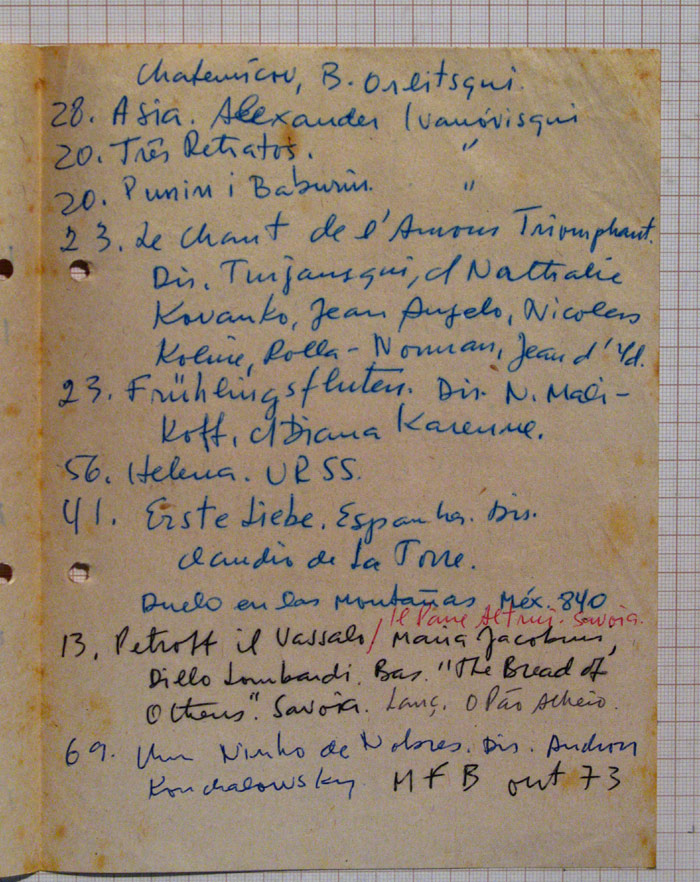 Chatemicov, B. Orlitsqui.
28. Asia. Alexander Ivanóvisqui
20. Três Retratos. "
20. Punin i Baburin. "
23. Le Chant de l'Amour Triomphant.
Dir. Turjansqui, c/ Nathalie
Kovanko, Jean Angelo, Nicolas
Koline, Rolla-Norman, Jean d'Yd.
23. Frühlingsfluten. Dir. N. Mali-
koff, c/ Diana Karenne.
56. Helena. URSS.
41. Erste Liebe. Espanha. Dir.
Claudio de La Torre.
Duelo en las Montañas Méx. 840
/Il Pane Altrui. Savoia.
13. Petroff il Vassalo/ Maria Jacobini,
Dillo Lombardi. Bas. "The Bread of
Others". Savoia. Lanç. O Pão Alheio.
69. Um Ninho de Nobres. Dir. Andron
Konchalowsky MFB out 73